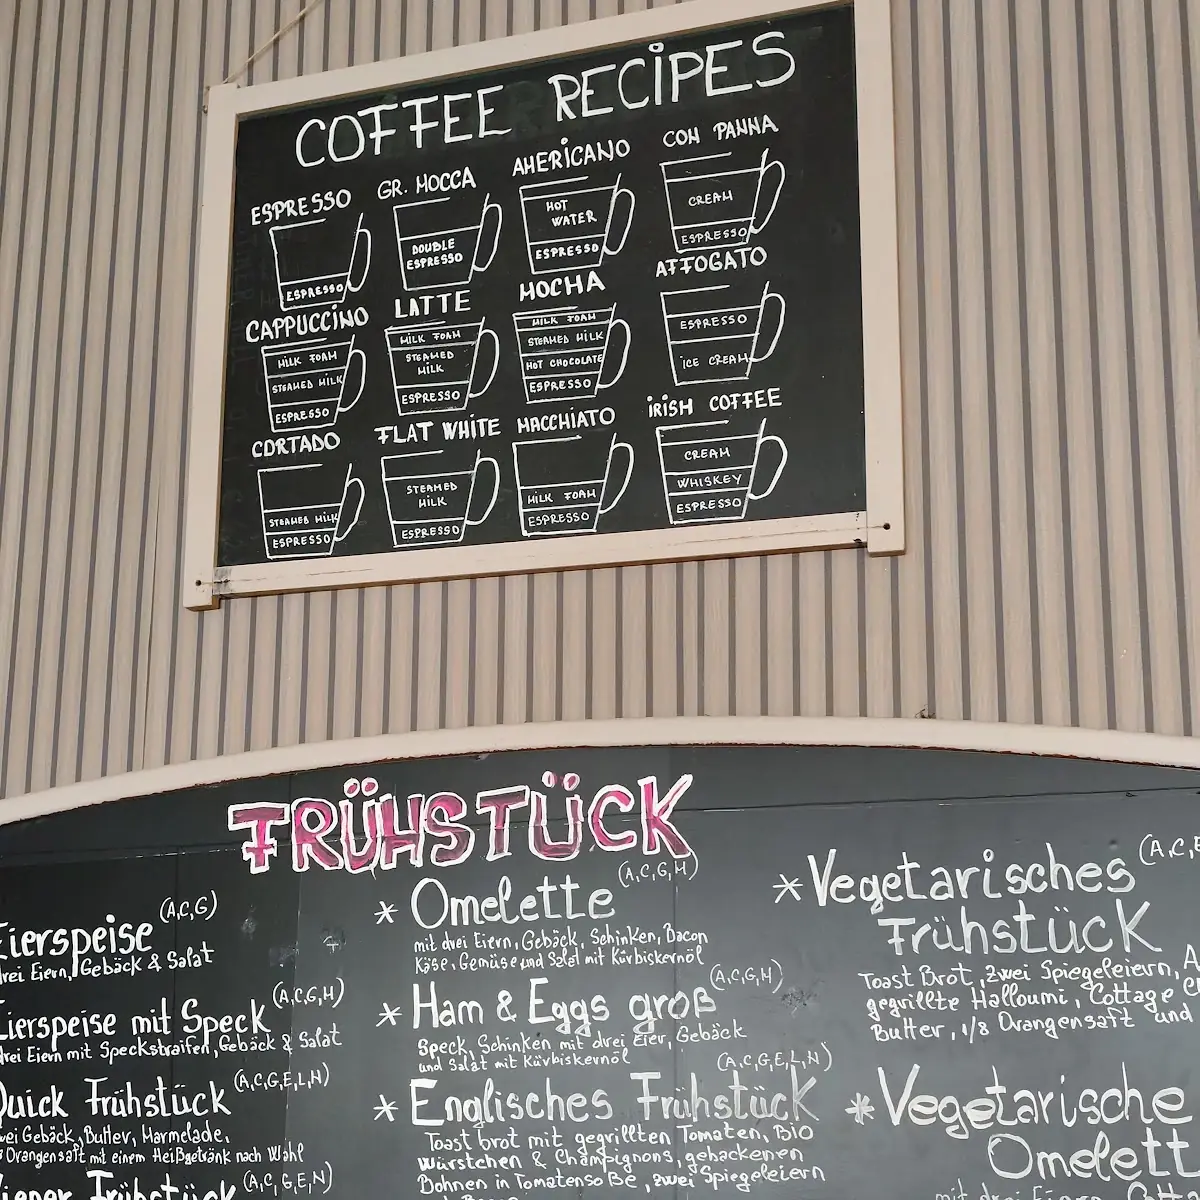 COFFEE RECIPES
ESPRESSO
ESPRESSO
GR. MOCCA
DOUBLE
ESPRESSO
AMERICANO
HOT
WATER
ESPRESSO
CON PANNA
CREAM
ESPRESSO
CAPPUCCINO
MILK FOAM
STEAMED MILK
ESPRESSO
LATTE
MILK FOAM
STEAMED
MILK
ESPRESSO
MOCHA
MILK FOAM
STEAMED MILK
HOT CHOCOLATE
ESPRESSO
AFFOGATO
ESPRESSO
ICE CREAM
CORTADO
STEAMED MILK
ESPRESSO
FLAT WHITE
STEAMED
MILK
ESPRESSO
MACCHIATO
MILK FOAM
ESPRESSO
IRISH COFFEE
CREAM
WHISKEY
ESPRESSO
FRÜHSTÜCK
Eierspeise (A,C,G)
drei Eiern, Gebäck & Salat
Eierspeise mit Speck (A,C,G,H)
drei Eiern mit Speckstraifen, Gebäck & Salat
Quick Frühstück (A,C,G,E,L,N)
zwei Gebäck, Butter, Marmelade,
Orangensaft mit einem Heißgetränk nach Wahl
Wiener Frühstück (A,C,G,E,N)
* Omelette (A,C,G,H)
mit drei Eiern, Gebäck, Schinken, Bacon
Käse, Gemüse und Salat mit Kürbiskernöl
* Ham & Eggs groß (A,C,G,H)
Speck, Schinken mit drei Eier, Gebäck
und Salat mit Kürbiskernöl
* Englisches Frühstück (A,C,G,E,L,N)
Toast brot mit gegrillten Tomaten, Bio
Würstchen & Champignons, gehackenen
Bohnen in Tomatensoße, zwei Spiegeleiern
* Vegetarisches (A,C,E
Frühstück
Toast Brot, zwei Spiegeleiern, A
gegrillte Halloumi, Cottage
Butter, 1/8 Orangensaft und
* Vegetarische
Omelett
mit drei Eiern